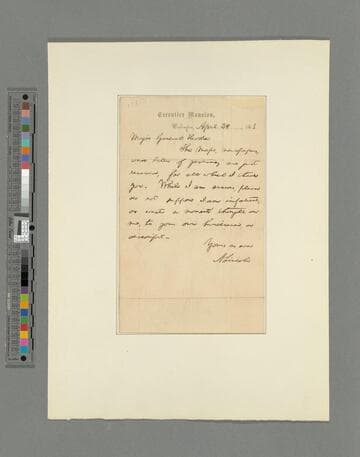 Executive Mansion,
Washington, April 28, 1863
Major General Hooker
The Maps, newspapers,
and letter of yesterday, are just
received, for all which I thank
you. While I am anxious, please
do not suppose I am impatient,
or waste a moment's thought on
me, to your own hindrance, or
discomfort.
Yours as ever
A. Lincoln